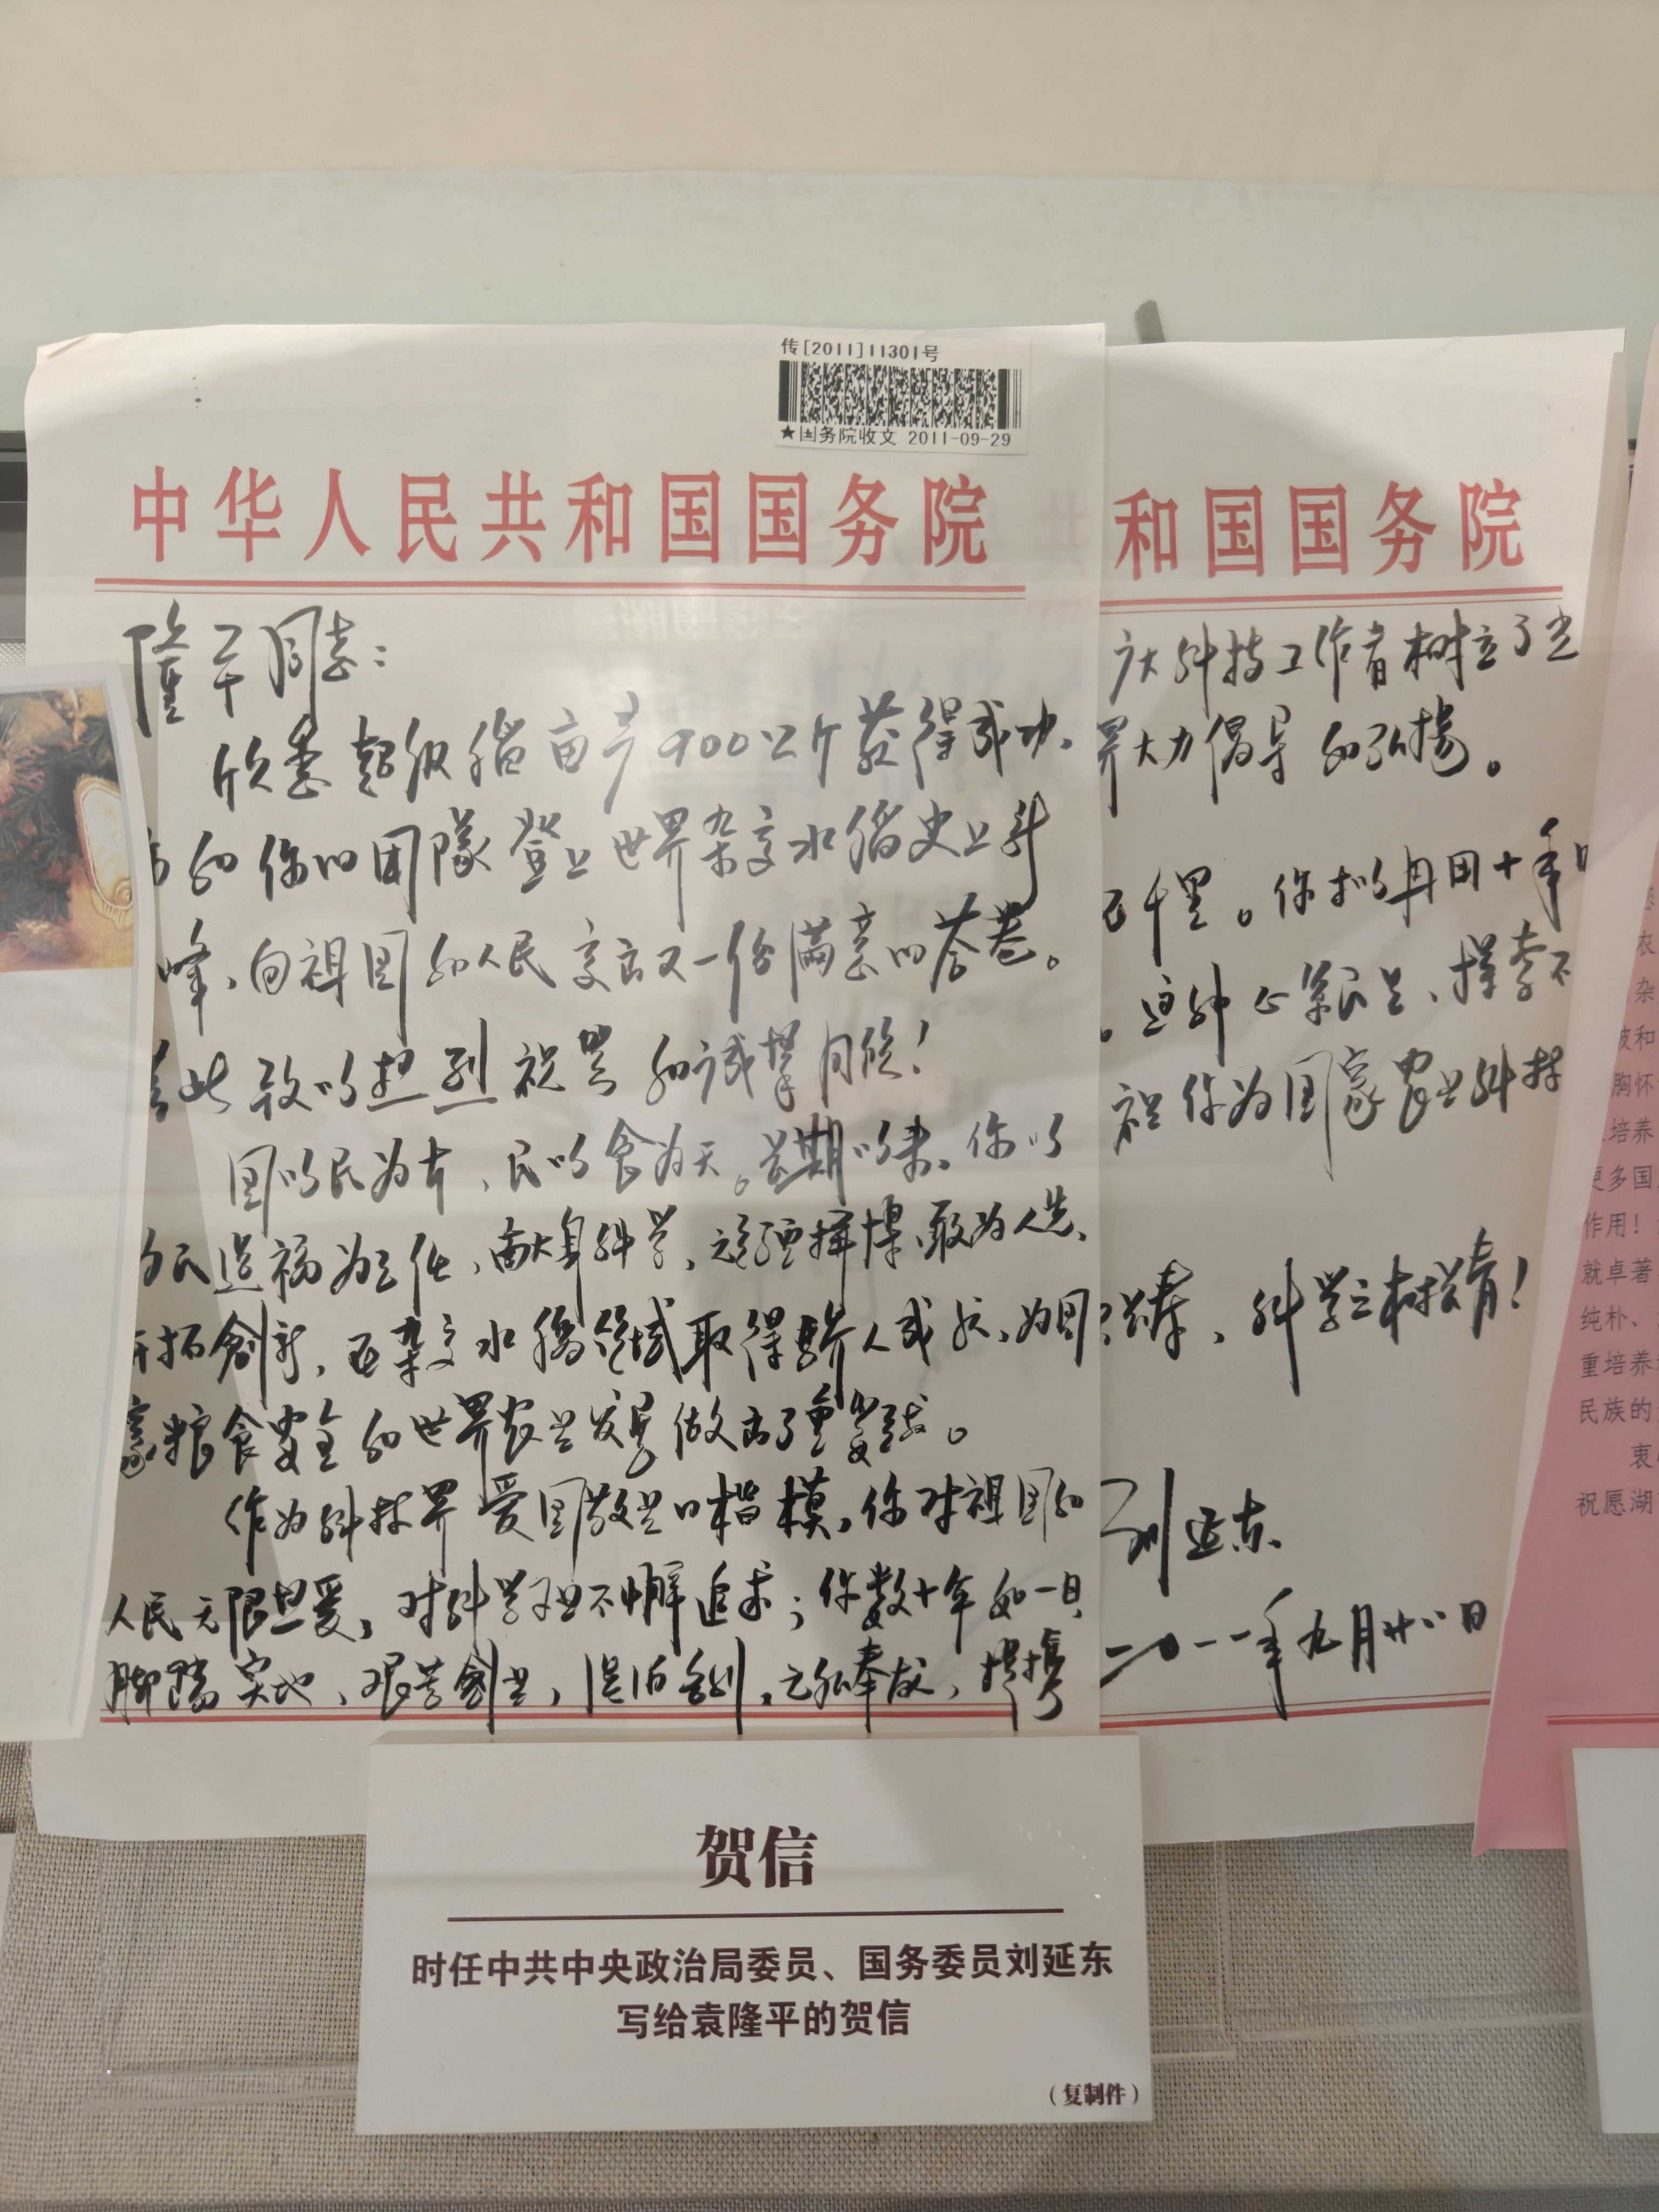 传[2011]11301号
★国务院收文 2011-09-29
中华人民共和国国务院
隆平同志:
欣悉超级稻亩产900公斤获得成功,
和你的团队登上世界杂交水稻史上新
峰,向祖国和人民交出又一份满意的答卷。
此致以热烈祝贺和诚挚问候!
国以民为本,民以食为天。长期以来,你以
为民造福为己任,献身科学,顽强拼搏,敢为人先,
开拓创新,在杂交水稻领域取得骄人成就,为国
家粮食安全和世界农业发展做出了重要贡献。
作为科技界爱国敬业的楷模,你对祖国和
人民无限热爱,对科学事业不懈追求;你数十年如一日
脚踏实地、艰苦创业,淡泊名利,无私奉献,提携
共和国国务院
广大科技工作者树立了光
界大力倡导和弘扬。
千里。你书以丹田十年
。这种
祝你为国家农业科技
,科学之树常青!
刘延东
二〇一一年九月廿八日
衣
杂
和
胸怀
培养
更多国
作用!
就卓著
纯朴、
重培养
民族的
衷
祝愿湖
贺信
时任中共中央政治局委员、国务委员刘延东
写给袁隆平的贺信
(复制件)